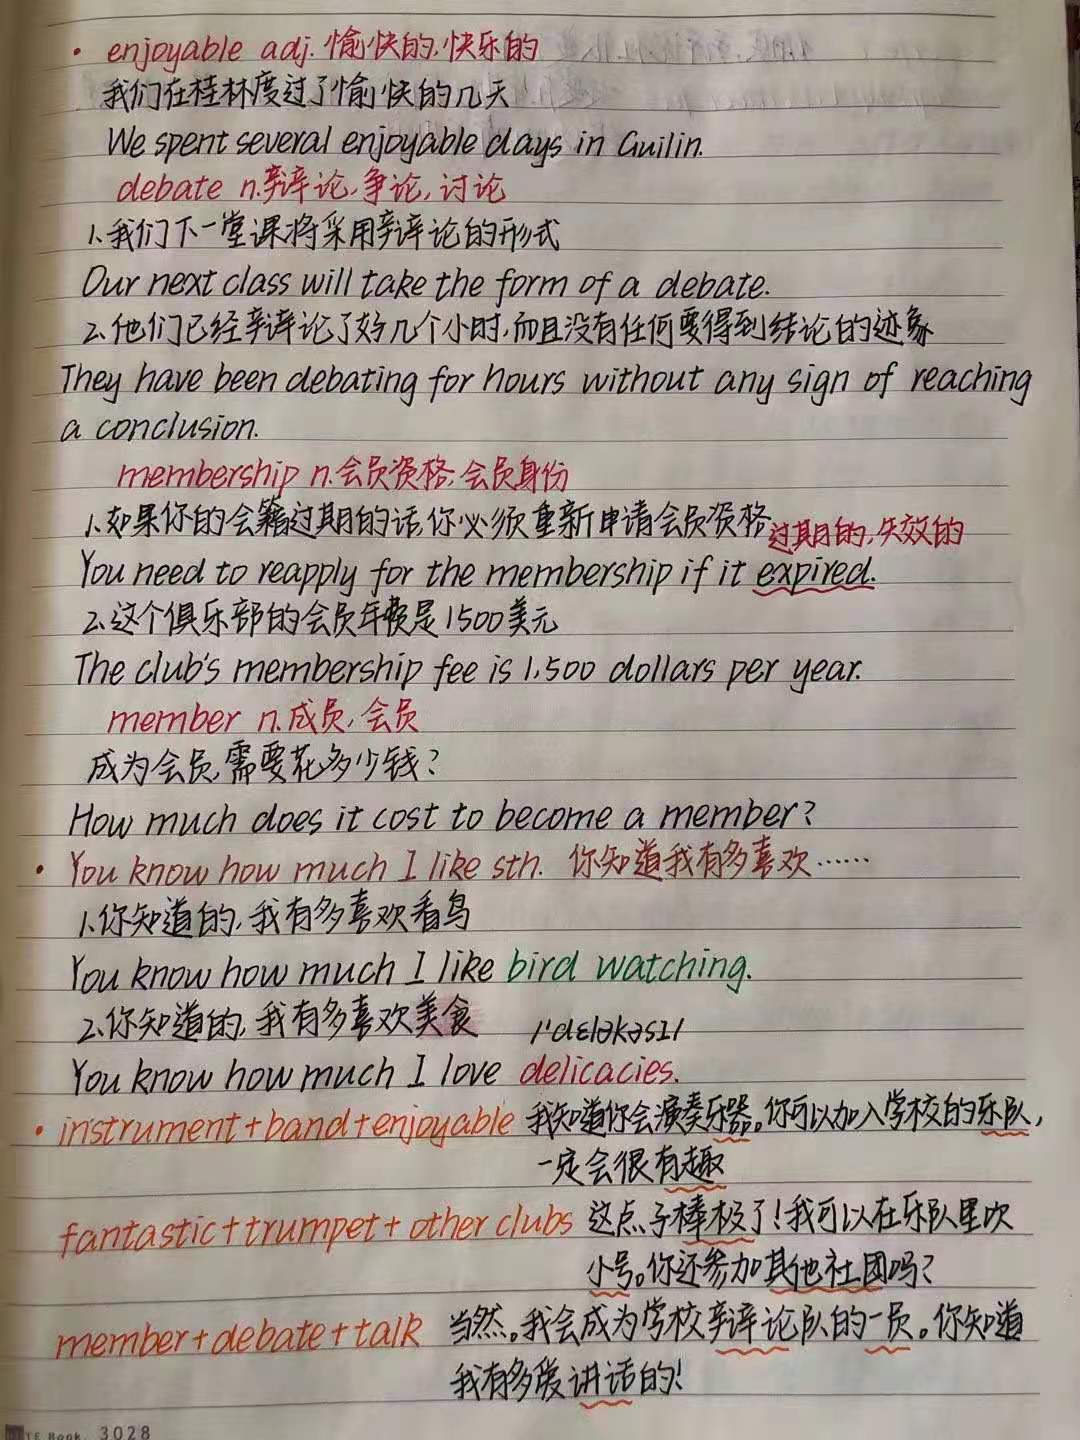 • enjoyable adj. 愉快的,快乐的
我们在桂林度过了愉快的几天
We spent several enjoyable days in Guilin.
debate n.辩论,争论,讨论
1.我们下一堂课将采用辩论的形式
Our next class will take the form of a debate.
2.他们已经辩论了好几个小时,而且没有任何要得到结论的迹象
They have been debating for hours without any sign of reaching
a conclusion.
membership n.会员资格,会员身份
1.如果你的会籍过期的话,你必须重新申请会员资格
过期的,失效的
You need to reapply for the membership if it expired.
2.这个俱乐部的会员年费是1500美元
The club's membership fee is 1,500 dollars per year.
member n.成员,会员
成为会员,需要花多少钱?
How much does it cost to become a member?
• You know how much I like sth. 你知道我有多喜欢……
1.你知道的,我有多喜欢看鸟
You know how much I like bird watching.
2.你知道的,我有多喜欢美食 /'dɛləkəsɪ/
You know how much I love delicacies.
• instrument+band+enjoyable 我知道你会演奏乐器。你可以加入学校的乐队,
一定会很有趣
fantastic+trumpet+other clubs 这点子棒极了!我可以在乐队里吹
小号。你还参加其他社团吗?
member+debate+talk 当然。我会成为学校辩论队的一员。你知道
我有多爱讲话的!
TE Book. 3028